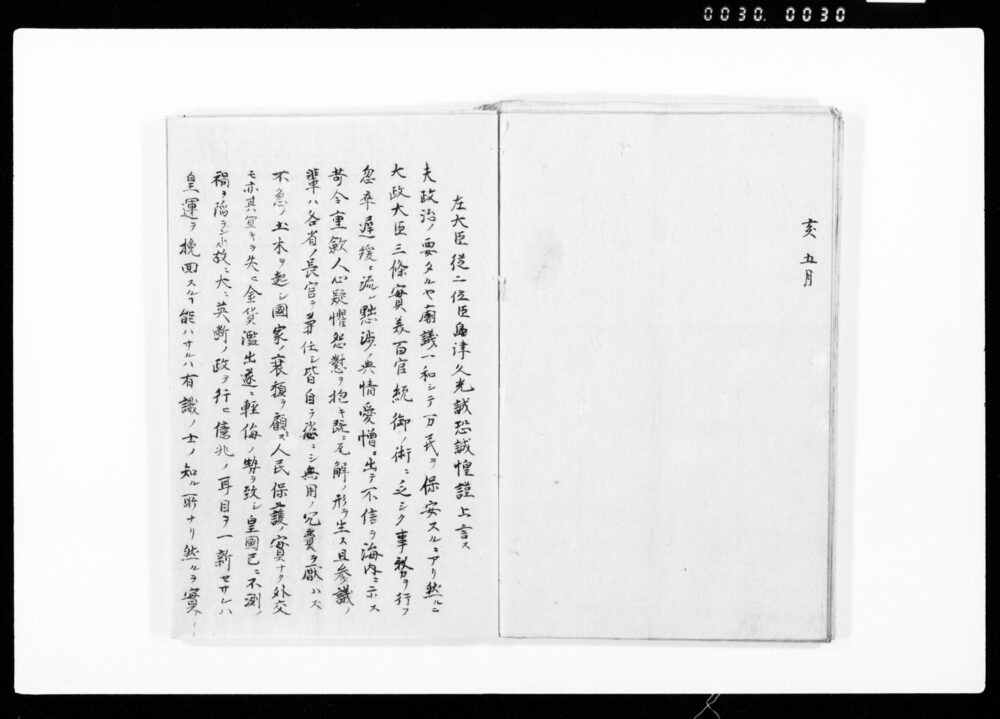 0030. 0030
亥五月
左大臣従二位臣島津久光誠恐誠惶謹上言ス
夫政治ノ要タルヤ廟議一和シテ万民ヲ保安スルニアリ然ルニ
大政大臣三條實美百官統御ノ術ニ乏シク事務ヲ行フ
忽卒遅緩ニ流レ黜渉ノ典情愛憎ニ出テ不信ヲ海内ニ示ス
苛令重歛人心疑懼怨懟ヲ抱キ既ニ瓦解ノ形ヲ生ス且参議ノ
輩ハ各省ノ長官ヲ兼任シ皆自ラ恣ニシ無用ノ冗費ヲ厭ハス
不急ノ土木ヲ起シ國家ノ衰頽ヲ顧ス人民保護ノ實ナク外交
モ亦其宜キヲ失ヒ金貨濫出遂ニ軽侮ノ勢ヲ致シ皇國已ニ不測ノ
禍ヲ陥ラントス故ニ大ニ英断ノ政ヲ行ヒ億兆ノ耳目ヲ一新セサレハ
皇運ヲ挽回スルヿ能ハサルハ有識ノ士ノ知ル所ナリ然ルヲ實美